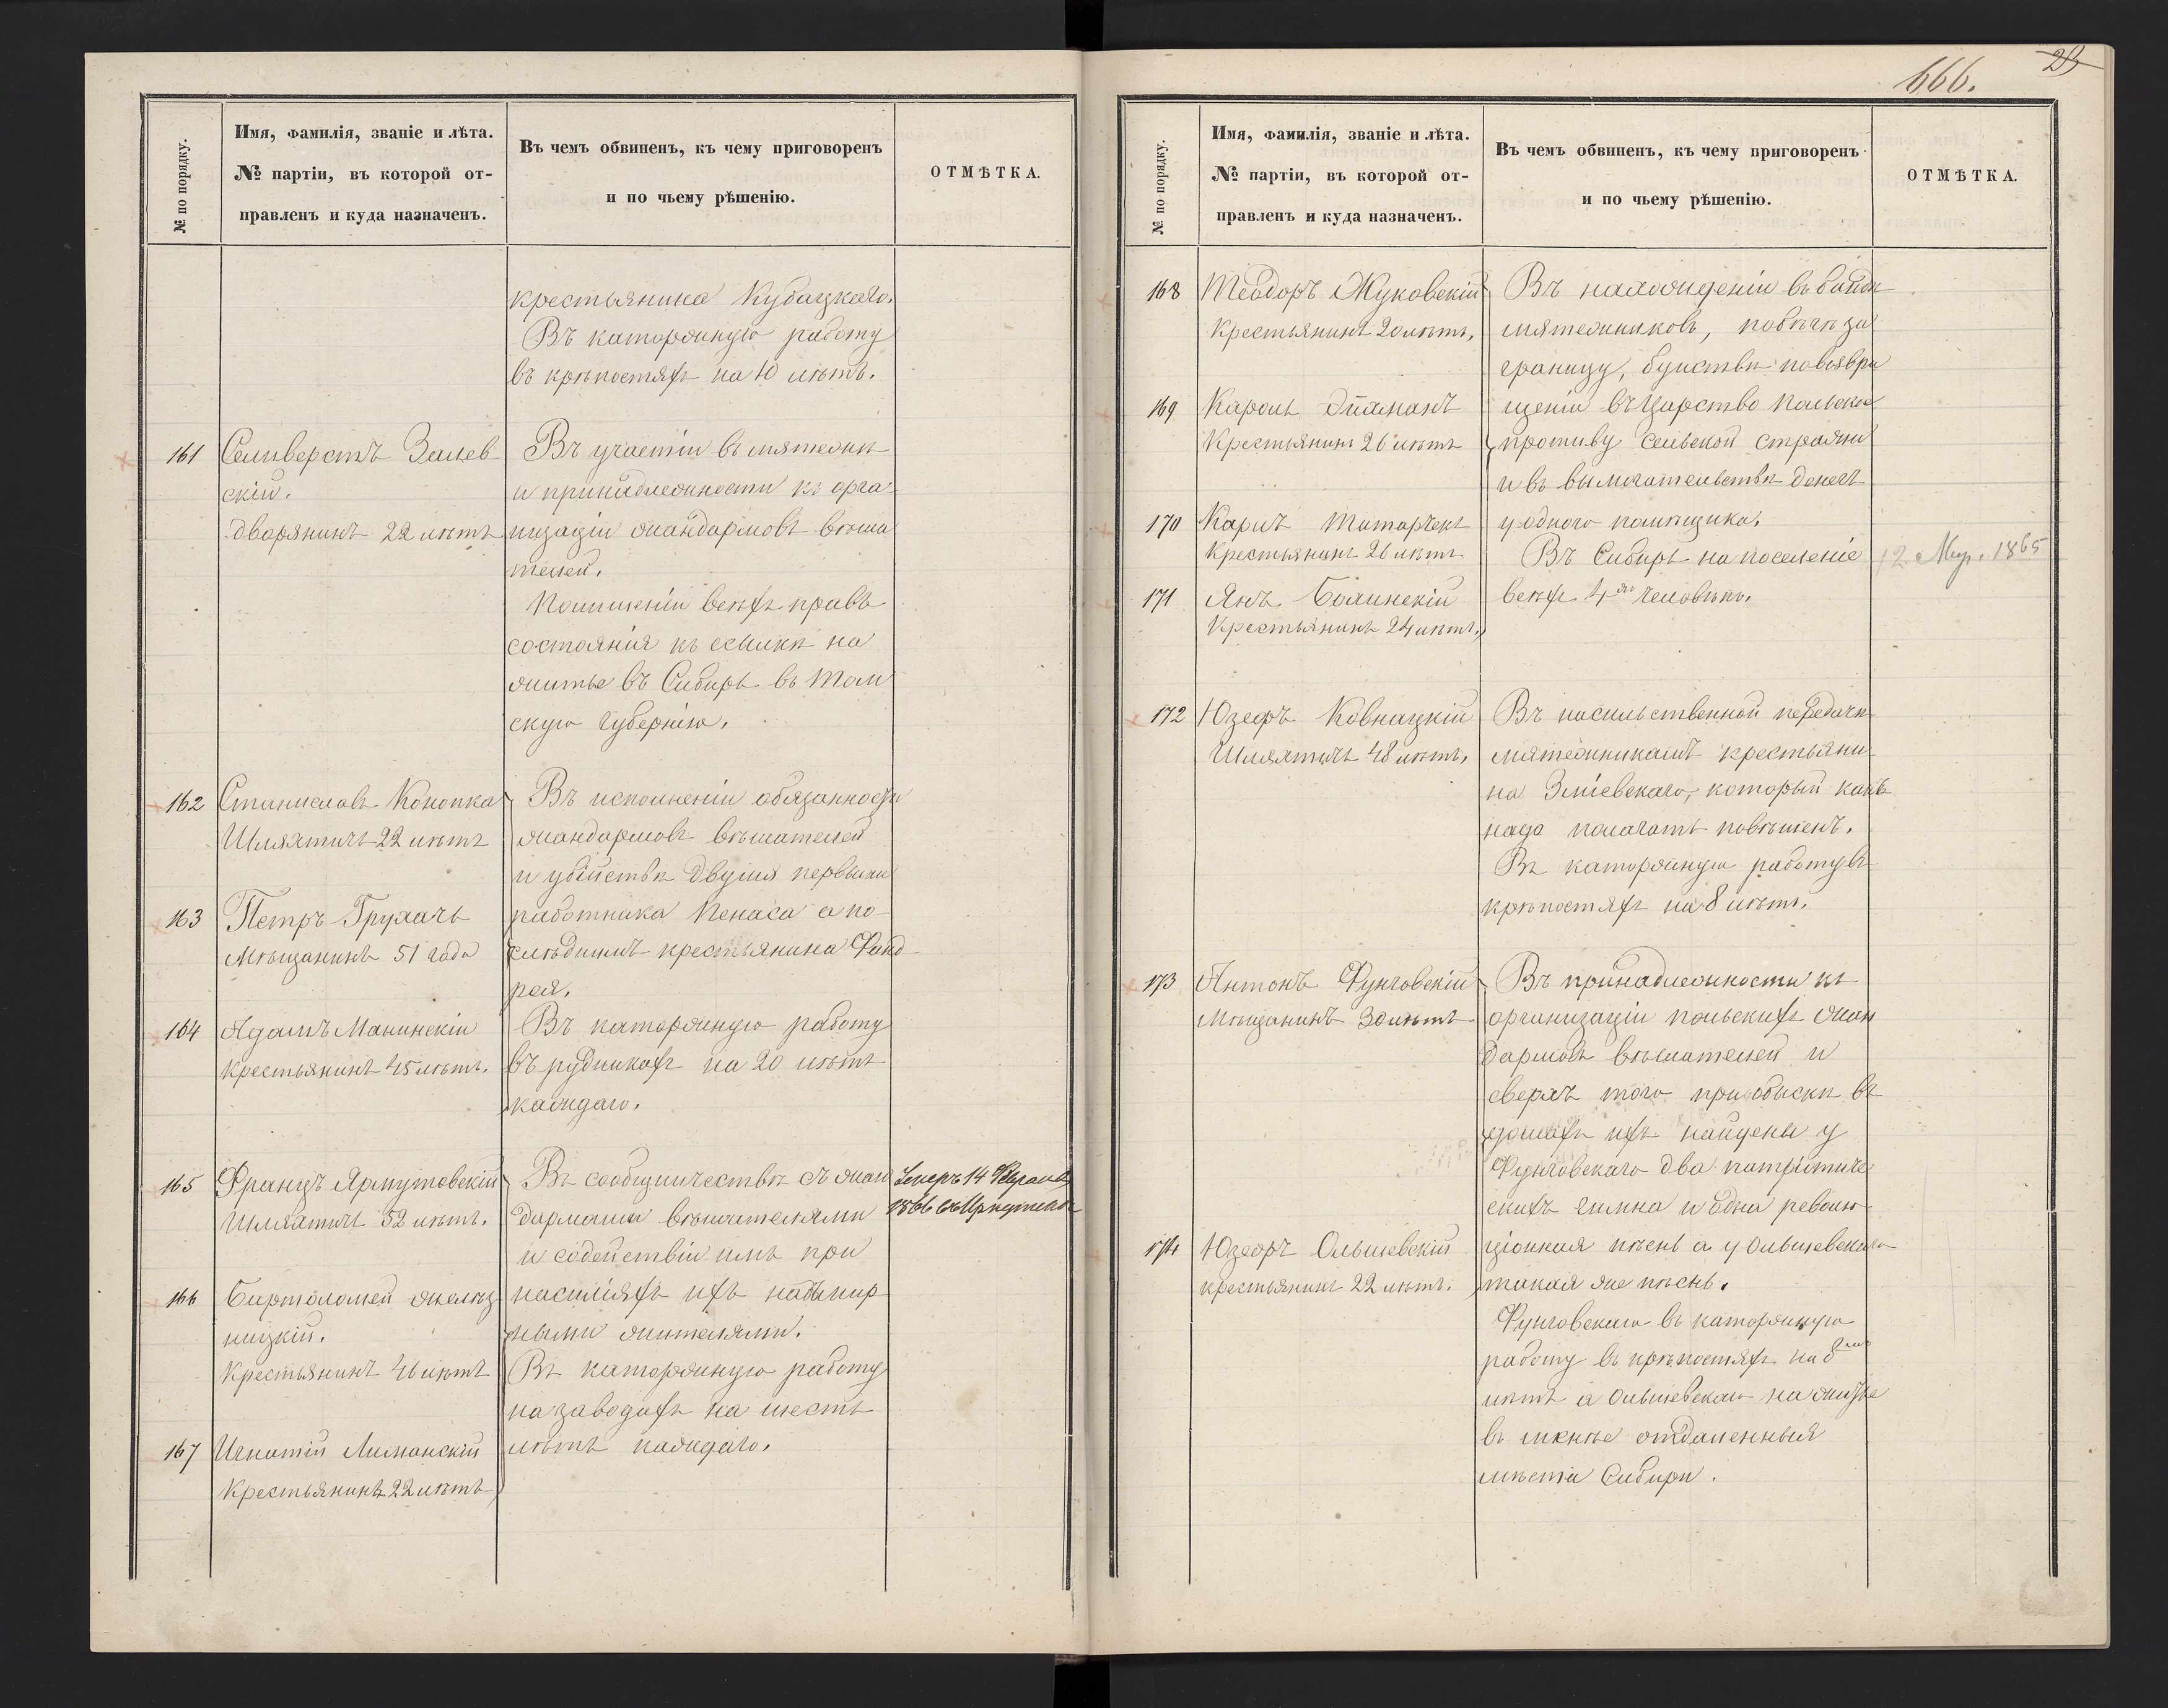 № по порядку.
Имя, фамилія, званіе и лѣта.
№ партіи, въ которой от-
правленъ и куда назначенъ.
Въ чемъ обвиненъ, къ чему приговоренъ
и по чьему рѣшенію.
ОТМѢТКА.
крестьянина Кубацкаго.
Въ каторжную работу
въ крѣпостяхъ на 10 лѣтъ.
161
Селиверстъ Залев
скій.
Дворянинъ 22 лѣтъ
Въ участіи въ мятежѣ
и принадлежности къ орга-
низаціи жандармовъ вѣша
телей.
По лишеніи всѣхъ правъ
состоянія къ ссылкѣ на
житье въ Сибирь въ Том
скую губернію.
162
Станиславъ Конопка
Шляхтичъ 22 лѣтъ
163
Петръ Грухачъ
Мѣщанинъ 51 года
164
Адамъ Манинскій
Крестьянинъ 45 лѣтъ.
Въ исполненіи обязанности
жандармовъ вѣшателей
и убійствѣ двумя первыми
работника Пенаса а по-
слѣднимъ крестьянина Фанд-
рея.
Въ каторжную работу
въ рудникахъ на 20 лѣтъ
каждаго.
165
Францъ Ярмутовскій
Шляхтичъ 52 лѣтъ.
166
Бартоломей Жмелѣз
ницкій.
Крестьянинъ 46 лѣтъ
167
Игнатій Лиманскій
Крестьянинъ 22 лѣтъ
Въ сообщничествѣ съ жан
дармами вѣшателями
и содействіи имъ при
насиліяхъ ихъ надъ мир
ными жителями.
Въ каторжную работу
на заводахъ на шесть
лѣтъ каждаго.
Умеръ 14 Февраля
1866 въ Иркутскѣ
666.
29
№ по порядку.
Имя, фамилія, званіе и лѣта.
№ партіи, въ которой от-
правленъ и куда назначенъ.
Въ чемъ обвиненъ, къ чему приговоренъ
и по чьему рѣшенію.
ОТМѢТКА.
168
Теодоръ Жуковскій
Крестьянинъ 20 лѣтъ.
169
Кароль Дйаманъ
Крестьянинъ 26 лѣтъ
170
Карлъ Татарчекъ
Крестьянинъ 26 лѣтъ
171
Янъ Болинскій
Крестьянинъ 24 лѣтъ.
Въ нахожденіи въ бандѣ
мятежниковъ, побѣгѣ за
границу, буйствѣ по возвра
щеніи въ Царство Польское
противу сельской стражи
и въ вымогательствѣ денегъ
у одного помѣщика.
Въ Сибирь на поселеніе
всѣхъ 4хъ человѣкъ.
12 Мар. 1865
172
Юзефъ Ковнацкій
Шляхтичъ 48 лѣтъ.
Въ насильственной передачѣ
мятежникамъ крестьяни
на Зміевскаго, который какъ
надо полагать повѣшенъ.
Въ каторжную работу въ
крѣпостяхъ на 8 лѣтъ.
173
Антонъ Фунговскій
Мѣщанинъ 30 лѣтъ
174
Юзефъ Ольшевскій
крестьянинъ 22 лѣтъ.
Въ принадлежности къ
организаціи польскихъ жан
дармовъ вѣшателей и
сверхъ того при обыскѣ въ
домахъ ихъ найдены у
Фунговскаго два патріотиче
скихъ гимна и одна револю-
ціонная пѣснь а у Ольшевскаго
такая же пѣснь.
Фунговскаго въ каторжную
работу въ крѣпостяхъ на 8
лѣтъ а Ольшевскаго на житье
въ менѣе отдаленныя
мѣста Сибири.